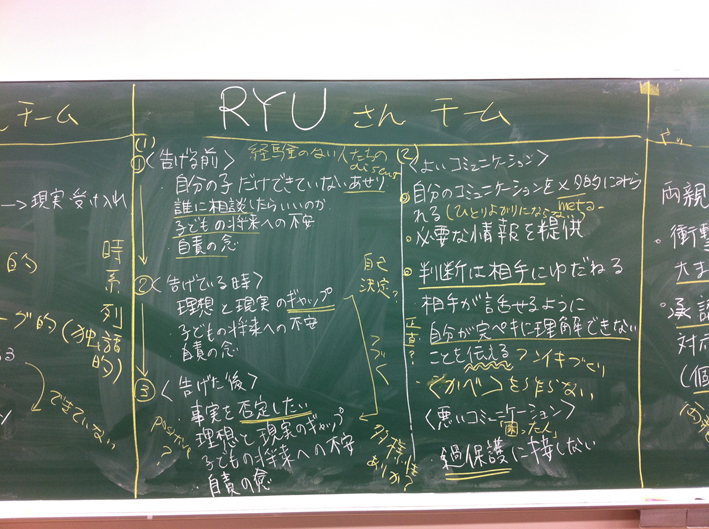 チーム
→現実受け入れ
的
時系列
的(独話的)
できていない
RYU さん チーム
(1)
経験のない人たちの
discour
①〈告げる前〉
・自分の子だけできていないあせり
・誰に相談したらいいのか
・子どもの将来への不安
・自責の念
②〈告げている時〉
・理想と現実のギャップ
・子どもの将来への不安
・自責の念
自己決定?
つづく
③〈告げた後〉
・事実を否定したい
・理想と現実のギャップ
・子どもの将来への不安
・自責の念
positive?
多様性ありか?
(2)
〈よいコミュニケーション〉
・自分のコミュニケーションをメタ的にとらえられる(ひとりよがりにならない)
meta-
・必要な情報を提供
・判断は相手にゆだねる
・相手が話せるように
正直?
・自分が完ペキに理解できない
ことを伝える フンイキづくり
・〈かべ〉を作らない
〈悪いコミュニケーション〉
「困った人」
・過保護に接しない
両親
・衝撃
大き
・承認
対応
(個